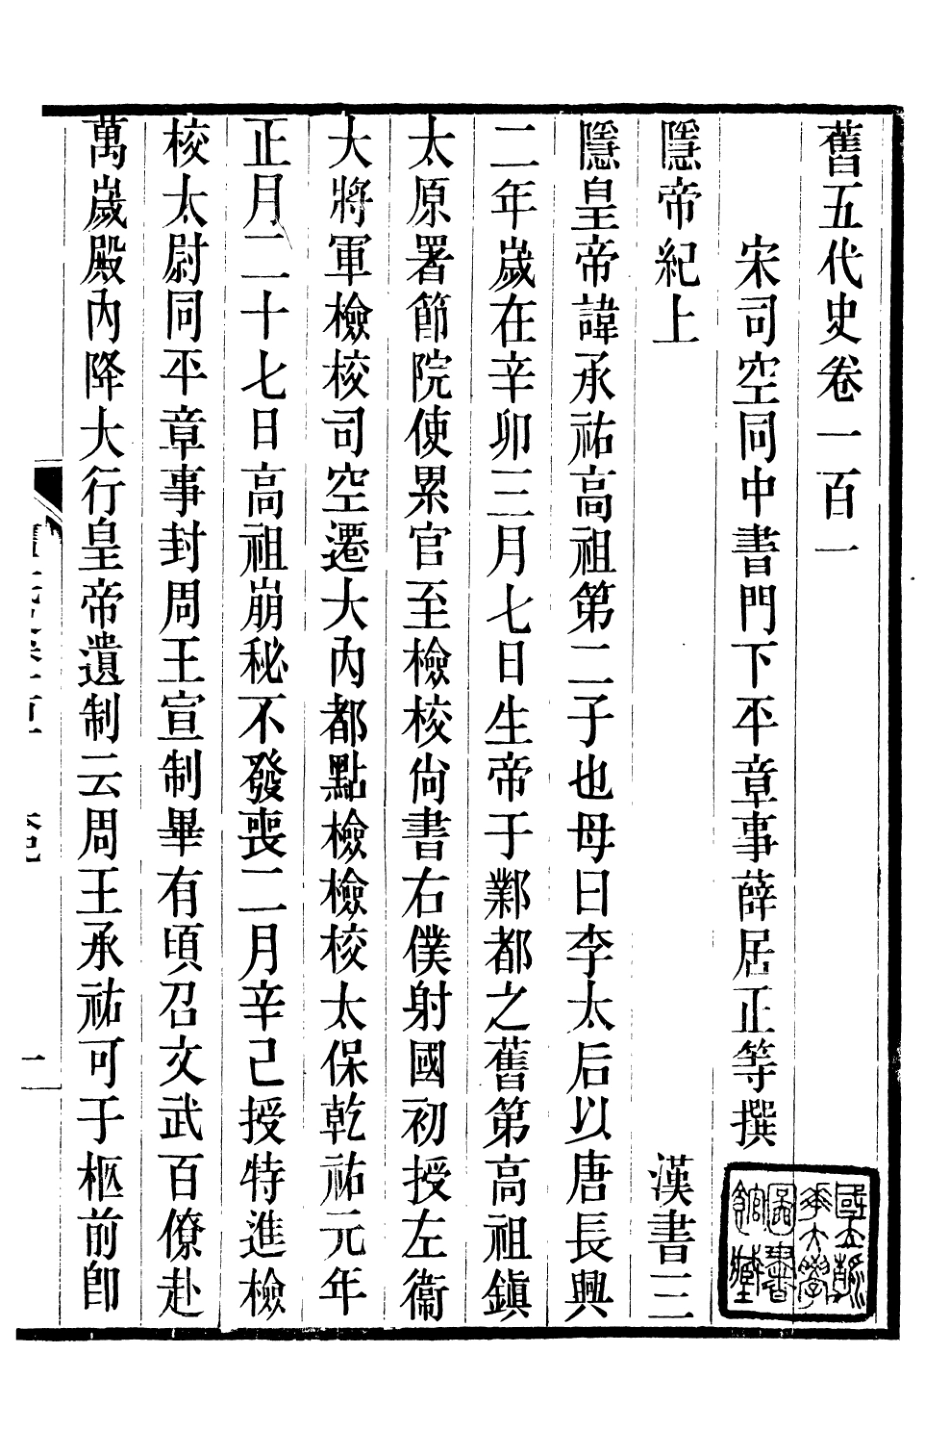 舊五代史卷一百一
宋司空同中書門下平章事薛居正等撰
隱帝紀上
漢書三
隱皇帝諱承祐高祖第二子也母曰李太后以唐長興
二年歲在辛卯三月七日生帝于鄴都之舊第高祖鎭
太原署節院使累官至檢校尙書右僕射國初授左衞
大將軍檢校司空遷大內都點檢檢校太保乾祐元年
正月二十七日高祖崩秘不發喪二月辛己授特進檢
校太尉同平章事封周王宣制畢有頃召文武百僚赴
萬歲殿內降大行皇帝遺制云周王承祐可于柩前卽
一
國立清華大學圖書館藏